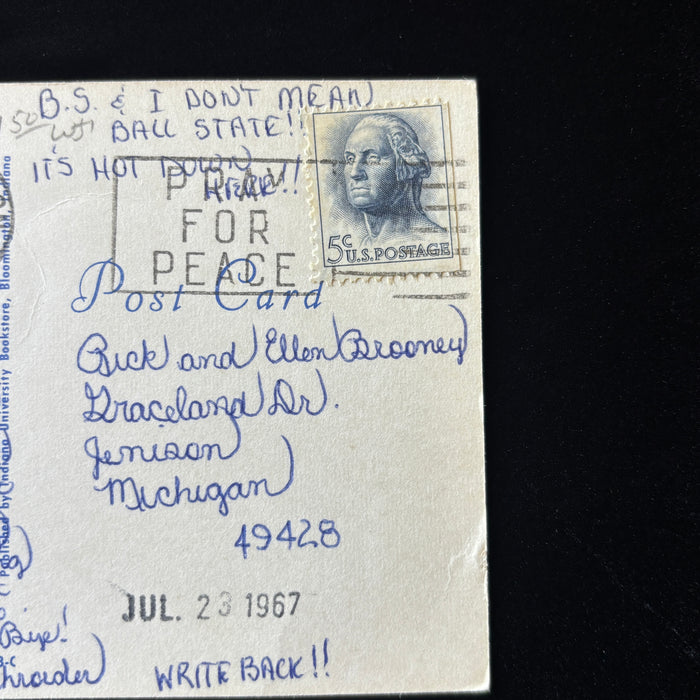 B.S. & I DON'T MEAN
BALL STATE!!
IT'S HOT DOWN
HERE!!
50
PRAY
FOR
PEACE
5c
U.S. POSTAGE
Post Card
Rick and Ellen Brooney
Graceland Dr.
Jenison
Michigan
49428
JUL. 23 1967
WRITE BACK!!
Published by Indiana University Bookstore, Bloomington, Indiana
Bye!